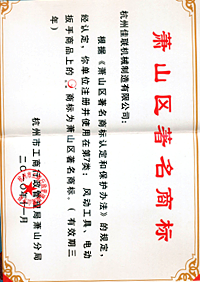 萧山区著名商标
杭州佳联机械制造有限公司:
根据《萧山区著名商标认定和保护办法》的规定,
经认定,你单位注册并使用在第7类:风动工具、电动
扳手商品上的 商标为萧山区著名商标。(有效期三
年)
杭州市工商行政管理局萧山分局
二○一○年十一月